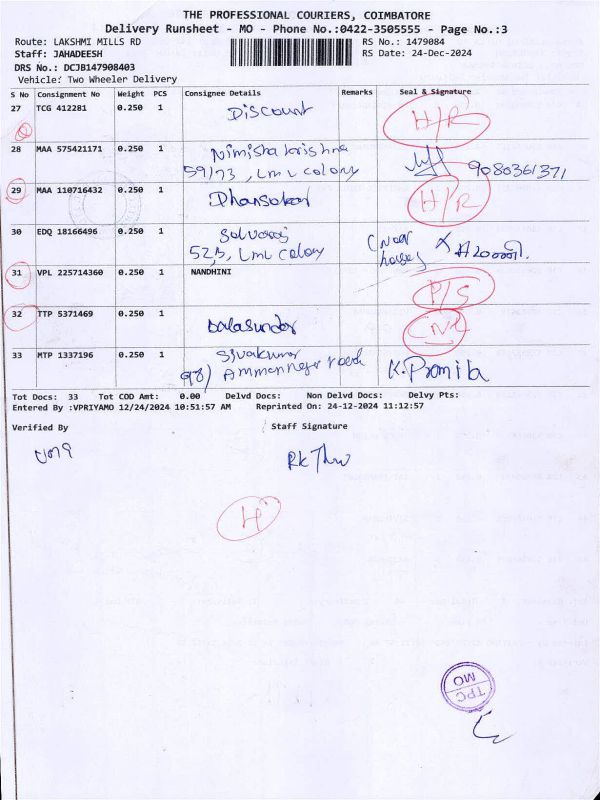 THE PROFESSIONAL COURIERS, COIMBATORE
Delivery Runsheet - MO - Phone No.:0422-3505555 - Page No.:3
Route: LAKSHMI MILLS RD RS No.: 1479084
Staff: JAHADEESH RS Date: 24-Dec-2024
DRS No.: DCJB147908403
Vehicle: Two Wheeler Delivery
S No Consignment No Weight PCS Consignee Details Remarks Seal & Signature
27 TCG 412281 0.250 1 Discount H/R
28 MAA 575421171 0.250 1 Nimisha krishna
59/73, Lmv colony 9080361371
29 MAA 110716432 0.250 1 Dhansekar H/R
30 EDQ 18166496 0.250 1 Selvaraj
52,B, LMV Colony
31 VPL 225714360 0.250 1 NANDHINI P/S
32 TTP 5371469 0.250 1 Balasundar CNR
33 MTP 1337196 0.250 1 Sivakumar K.Promila
98/ Ammannagar road
Tot Docs: 33 Tot COD Amt: 0.00 Delvd Docs: Non Delvd Docs: Delvy Pts:
Entered By :VPRIYAMO 12/24/2024 10:51:57 AM Reprinted On: 24-12-2024 11:12:57
Verified By Staff Signature
H
TPC
MO